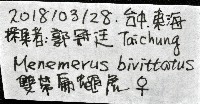 2018/03/28. 台中.東海
採集者:郭冠廷 Taichung
Menemerus bivittatus
雙帶扁蠅虎 ♀